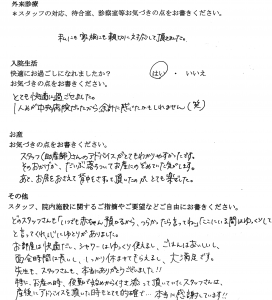 外来診療
＊スタッフの対応、待合室、診察室等お気づきの点をお書きください。
私にも家族にも親切にくださって頂きました。
入院生活
快適にお過ごしになれましたか？ はい・いいえ
お気づきの点をお書きください。
とても快適に過ごせました。
1人目が中央病院だったから余計に感じたかもしれません（笑）
お産
お気づきの点をお書きください。
スタッフ（助産師）さんのアドバイスがとてもわかりやすかったです。
そのおかげか、だいぶ落ちついてお産にのぞめていた気がします。
あと、お尻をおさえて背中をさすって頂いたのが、とても楽でした。
その他
スタッフ、院内施設に関するご指摘やご要望などご自由にお書きください。
どのスタッフさんも「いつでも赤ちゃん預かるから、つらかったら言ってね」「ここにいる間はゆっくりして」
と言ってくれ、心にゆとりがありました。
お部屋は快適だし、シャワーはゆっくり使えるし、ごはんはおいしいし、
面会時間に長いし、しっかり休ませてもらえるし、大満足です。
先生も、スタッフさんも、本当にありがとうございました!!
特に、お産の時、夜勤で始めから付き添って頂いていたスタッフさんは、
産後にアドバイスを頂いた時もとても的確で… 本当に感謝しています!!